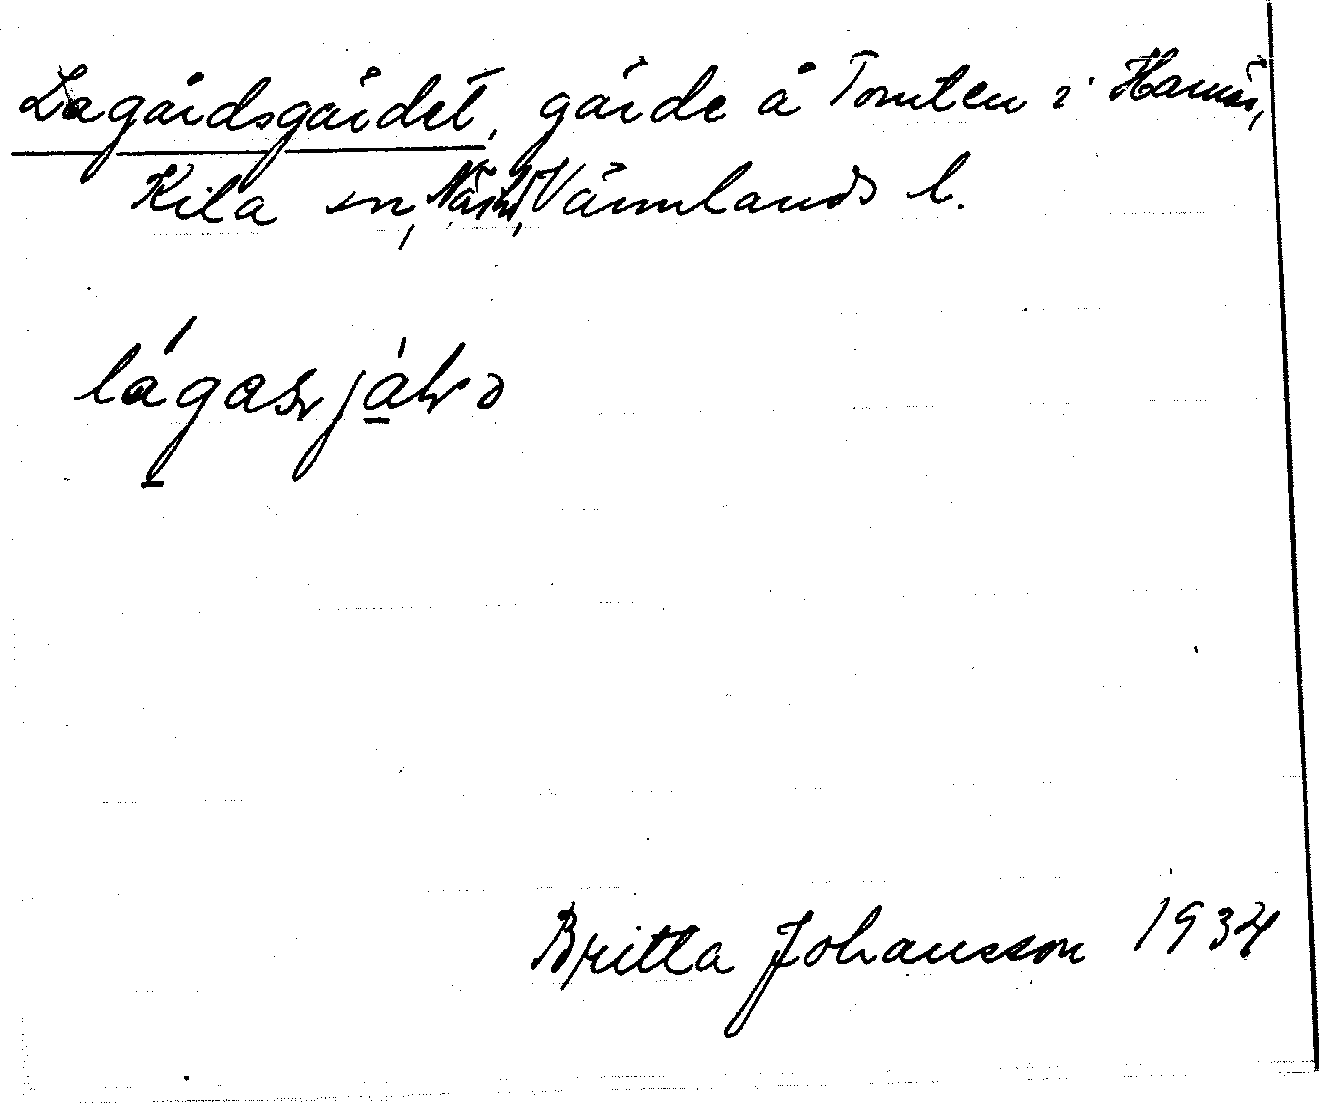 Lagårdsgärdet, gärde å Tomten i Hamnäs,
Kila sn, Näs hd, Värmlands l.
Britta Johansson 1934